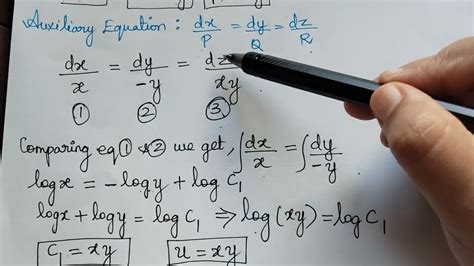 Auxiliary Equation: dx/P = dy/Q = dz/R
dx/x = dy/-y = dz/xy
① ② ③
Comparing eq ① & ② we get, ∫dx/x = ∫dy/-y
logx = -logy + log C₁
logx + logy = log C₁ ⇒ log(xy) = log C₁
C₁ = xy u = xy